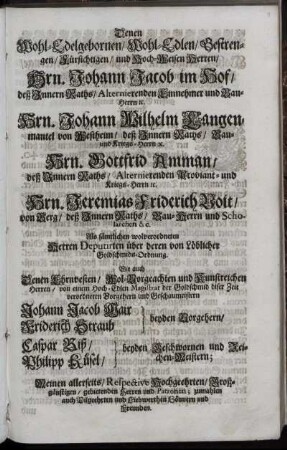 Denen
Wohl-Edelgebornen/ Wohl-Edlen/ Gestren-
gen/ Fürsichtigen/ und Hoch-Weisen Herren/
Hrn. Johann Jacob im Hof/
deß Innern Raths/ Alternierenden Einnehmer und Bau-
Herrn ꝛc.
Hrn. Johann Wilhelm Langen-
mantel von Westheim/ deß Innern Raths/ Bau-
und Kriegs-Herrn ꝛc.
Hrn. Gottfrid Amman/
deß Innern Raths/ Alternierenden Proviant- und
Kriegs-Herrn ꝛc.
Hrn. Jeremias Friderich Voit/
von Berg/ deß Innern Raths/ Bau-Herrn und Scho-
larchen &c.
Als sämtlichen wolverordneten
Herren Deputirten über deren von Löblicher
Goldschmids-Ordnung.
Wie auch
Denen Ehrnvesten/ Wol-Vorgeachten und Kunstreichen
Herren/ von einem Hoch-Edlen Magistrat der Goldschmid diser Zeit
verordneten Vorgehern und Geschaumeistern
Johann Jacob Bair
Friderich Straub
beyden Vorgehern/
Caspar Riß/
Philipp Küsel/
beyden Geschwornen und Zei-
chen-Meistern;
Meinen allerseits/ Respectivè Hochgeehrten/ Groß-
günstigen/ gebietenden Herren und Patronen; zumahlen
auch Vilgeehrten und Liebwerthen Gönnern und
Freunden.